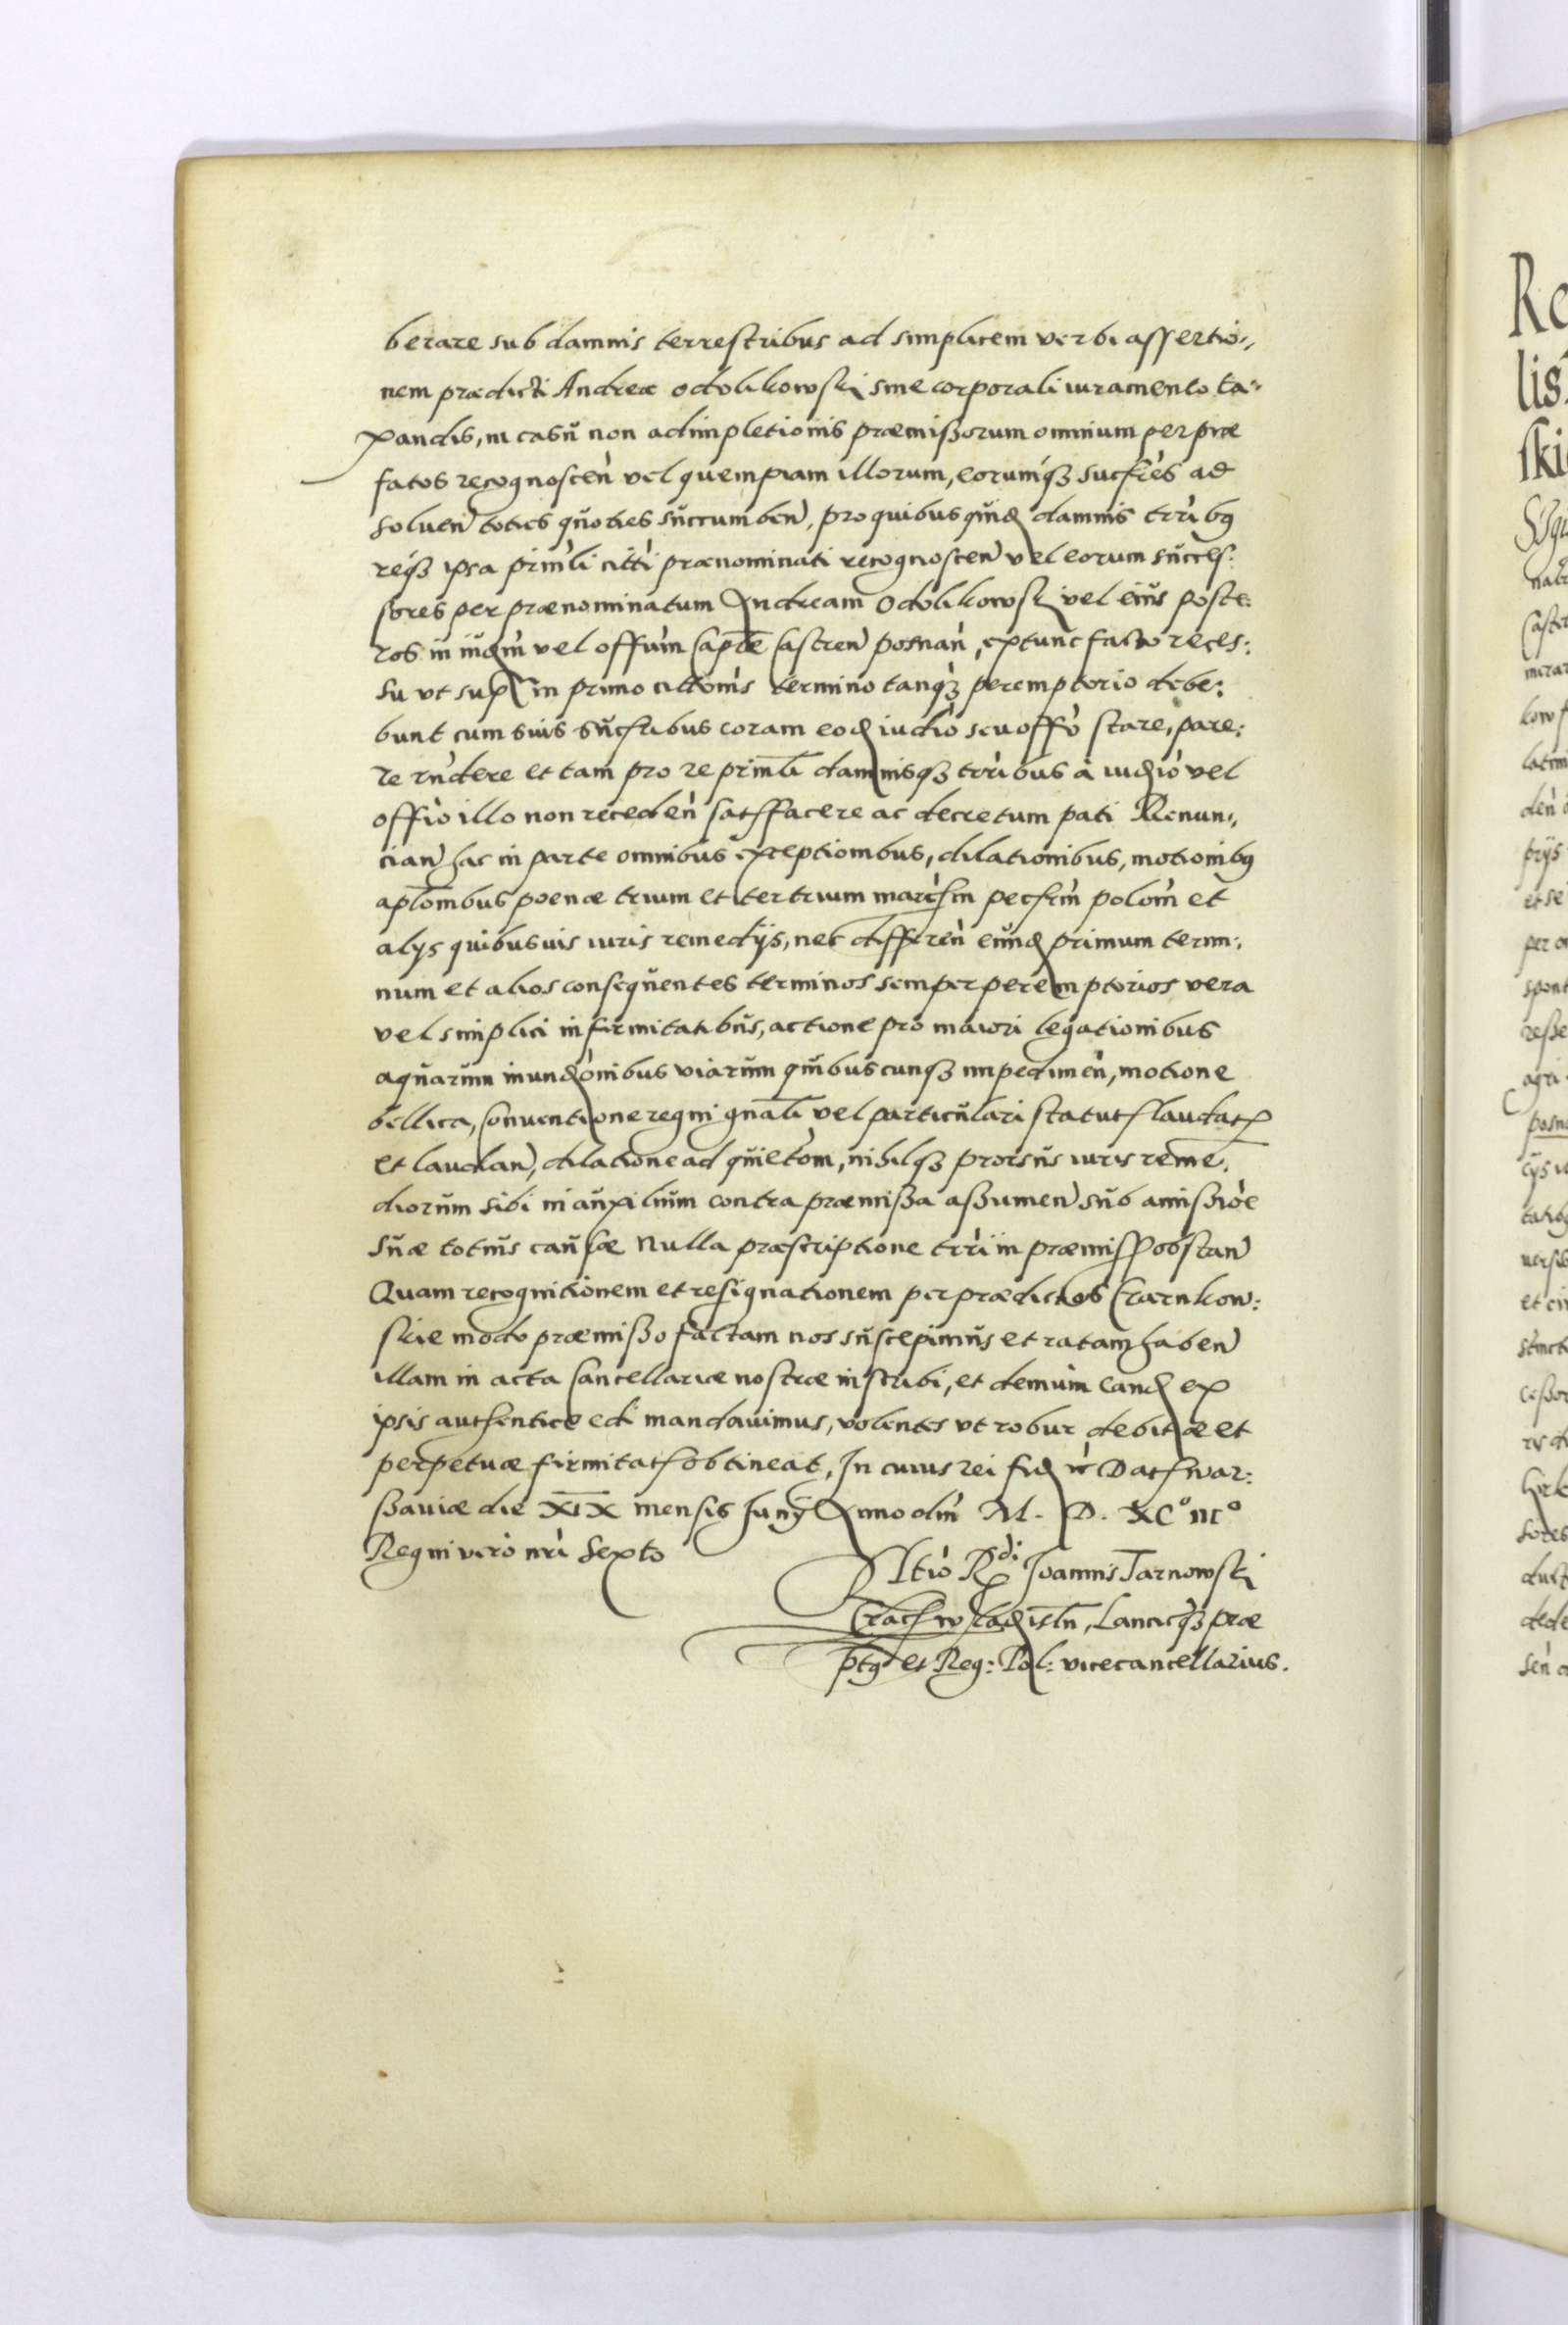 berare sub damnis terrestribus ad simplicem verbi assertio,,
nem prædicti Andreæ Odolikowski sine corporali iuramento ta,,
xandis, in casu non adimpletionis præmissorum omnium per præ
fatos recognoscen vel quempiam illorum, eorumq3 sucsrēs ad
soluen toties quoties succumben, pro quibus quid damnis trrib9
req3 ipsa prinli citti prænominati recognoscen vel eorum succes:
sores per prænominatum Andream Odolikowski vel eius poste:
ros in iudm vel offum Capte Castren posnan, extunc facto reces:
su vt sup in primo cittonis termino tanq3 peremptorio debe:
bunt cum suis sucsribus coram eod iudio seu offo stare, pare:
re rndere et tam pro re prinli damnisq3 trribus a iudio vel
offio illo non receden satsfacere ac decretum pati Renun,,
cian hac in parte omnibus exceptionibus, dilationibus, motionib9
aplombus poenæ trium et ter trium marcsm pecsrm polom et
alys quibusuis iuris remedijs, nec differen eund primum termi,
num et alios consequentes terminos semper peremptorios vera
vel simplici infirmitatibus, actione pro maiori legationibus
aquarum inundonibus viarum quibuscunq3 impedimen, motione
bellica, Conuentione regni gnali vel particulari statuts laudats
et laudan, dilatione ad quietom, nihilq3 prorsus iuris reme,
diorum sibi in auxilium contra præmissa assumen sub amissioe
suæ totius causæ Nulla præscriptione trrii in præmiss obstan
Quam recognitionem et resignationem per prædictos Czarnkow:
skie modo præmisso factam nos suscepimus et ratam haben
illam in acta Cancellariæ nostræ inscribi, et demum eand ex
ipsis authentice edi mandauimus, volentes vt robur debitæ et
perpetuæ firmitats obtineat, In cuius rei fid rc Dats war:
ssauiæ die XIX mensis Junij Anno dm M. D. XC° IIIc°
Regni vero nri Sexto
Rltio R di Joannis Tarnowski
Cracs wladisln, Lancicq3 præ
ptg et Reg: Pol: vicecancellarius.